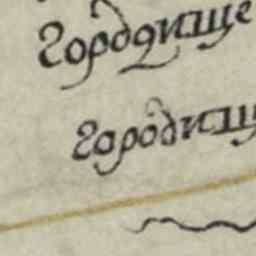 Городище
Городищ